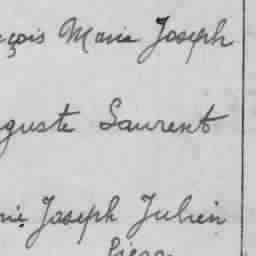 çois Marie Joseph
guste Laurent
rie Joseph Julien